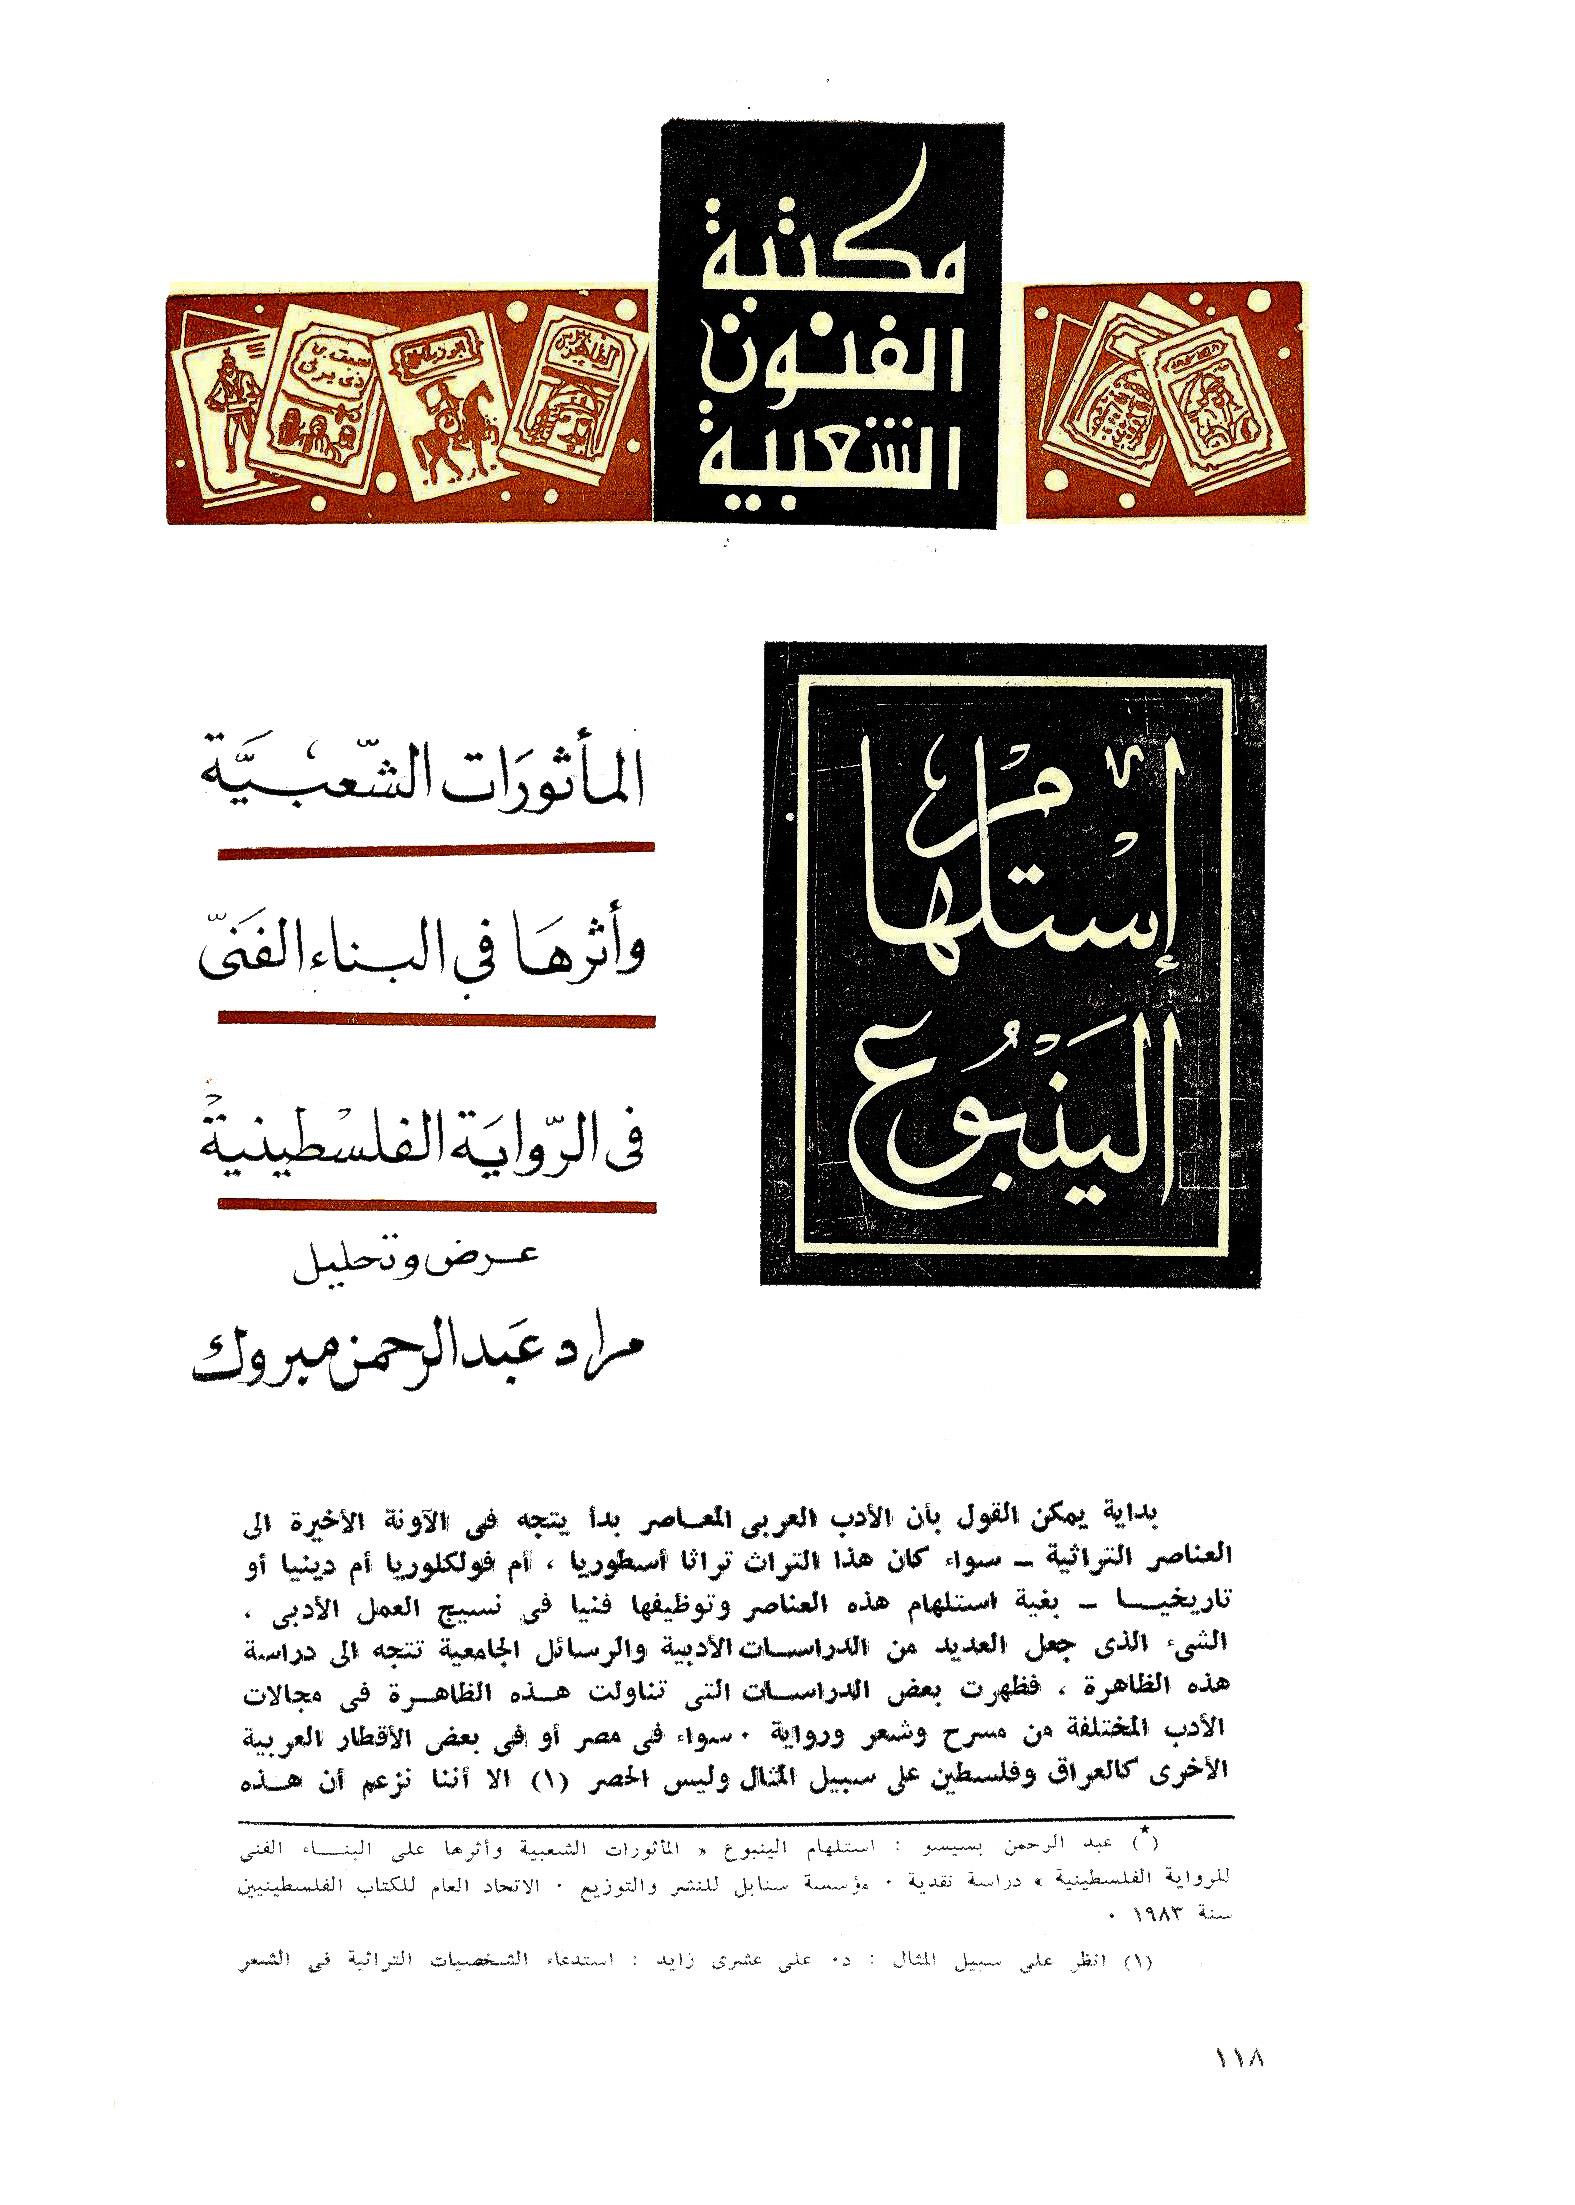 مكتبة
الفنون
الشعبية
سيف بن
ذى يزن
إستلهام
الينبوع
المأثورات الشعبية
وأثرها في البناء الفنى
فى الرواية الفلسطينية
عرض وتحليل
مراد عبد الرحمن مبروك
بداية يمكن القول بأن الأدب العربى المعـاصر بدأ يتجه فى الآونة الأخيرة الى
العناصر التراثية ــ سواء كان هذا التراث تراثا أسطوريا ، أم فولكلوريا أم دينيا أو
تاريخيـــا ــ بغية استلهام هذه العناصر وتوظيفها فنيا فى نسيج العمل الأدبى ،
الشىء الذى جعل العديد من الدراسـات الأدبية والرسائل الجامعية تتجه الى دراسة
هذه الظاهرة ، فظهرت بعض الدراسـات التى تناولت هـذه الظاهـرة فى مجالات
الأدب المختلفة من مسرح وشعر ورواية ٠ سواء فى مصر أو فى بعض الأقطار العربية
الأخرى كالعراق وفلسطين على سبيل المثال وليس الحصر (١) الا أننا نزعم أن هـذه
(*) عبد الرحمن بسيسو : استلهام الينبوع « المأثورات الشعبية وأثرها على البنـاء الفنى
للرواية الفلسطينية » دراسة نقدية ٠ مؤسسة سنابل للنشر والتوزيع ٠ الاتحاد العام للكتاب الفلسطينيين
سنة ١٩٨٣ ٠
(١) انظر على سبيل المثال : د٠ على عشرى زايد : استدعاء الشخصيات التراثية فى الشعر
١١٨